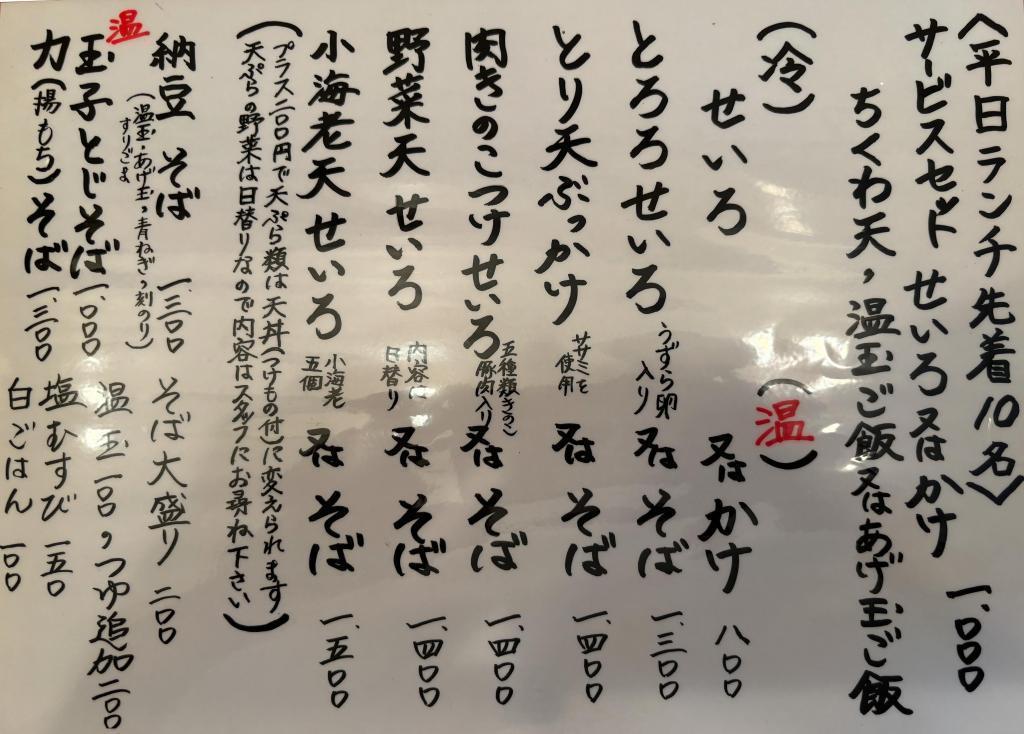 〈平日ランチ先着10名〉
サービスセット せいろ又はかけ 一、〇〇〇
ちくわ天,温玉ご飯又はあげ玉ご飯
(冷) (温)
せいろ 又は かけ 八〇〇
とろろせいろ うずら卵入り 又は そば 一、三〇〇
とり天ぶっかけ ササミを使用 又は そば 一、四〇〇
肉きのこつけせいろ 五種類きのこ豚肉入り 又は そば 一、四〇〇
野菜天せいろ 内容は日替り 又は そば 一、四〇〇
小海老天せいろ 小海老五個 又は そば 一、五〇〇
(プラス二〇〇円で天ぷら類は天丼(つけもの付)に変えられます
天ぷらの野菜は日替りなので内容はスタッフにお尋ね下さい)
納豆そば 一、三〇〇 そば大盛り 二〇〇
(温玉,あげ玉,青ねぎ,刻のり)
すりごま
温
玉子とじそば 一、〇〇〇 温玉一〇〇,つゆ追加二〇〇
力(揚もち)そば 一、三〇〇 塩むすび 一五〇
白ごはん 一〇〇